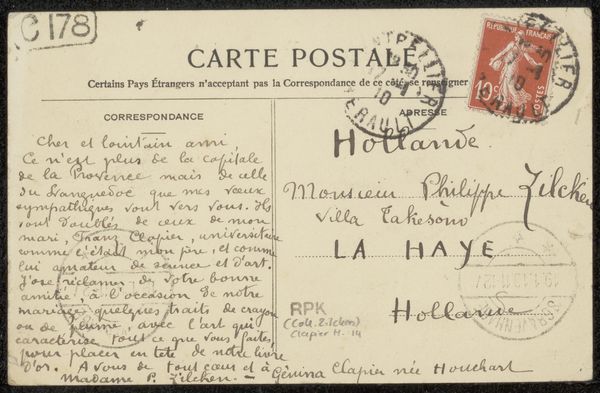 C 178
CARTE POSTALE
Certains Pays Étrangers n'acceptant pas la Correspondance de ce côté, se renseigner
CORRESPONDANCE
Cher et lointain ami,
Ce n'est plus de la capitale
de la Provence mais de celle
du Languedoc que mes vœux
sympathiques vont vers vous. Ils
sont doublés de ceux de mon
mari, Franz Clapier, universitaire
comme c'était mon père, et comme
lui amateur de science et d'art.
J'ose réclamer de votre bonne
amitié, à l'occasion de notre
mariage quelques traits de crayon
ou de plume, avec l'art qui
caractérise tout ce que vous faites,
pour placer en tête de notre livre
d'or. A vous de tout cœur et à
Madame P. Zilcken. — Génina Clapier née Houchart
ADRESSE
Hollande.
Monsieur Philippe Zilcken
Villa Takesono
LA HAYE
Hollande
RPK
(Coll. Zilcken)
Clapier H. 14
REPUBLIQUE FRANÇAISE
10c
POSTES
MONTPELLIER
HERAULT